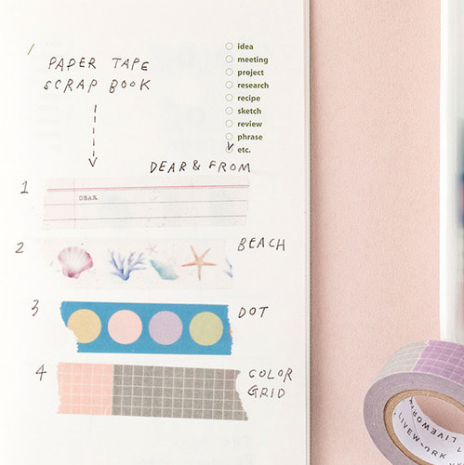 PAPER TAPE
SCRAP BOOK
idea
meeting
project
research
recipe
sketch
review
phrase
etc.
DEAR & FROM
1
DEAR
2
BEACH
3
DOT
4
COLOR
GRID
LIVEWORK